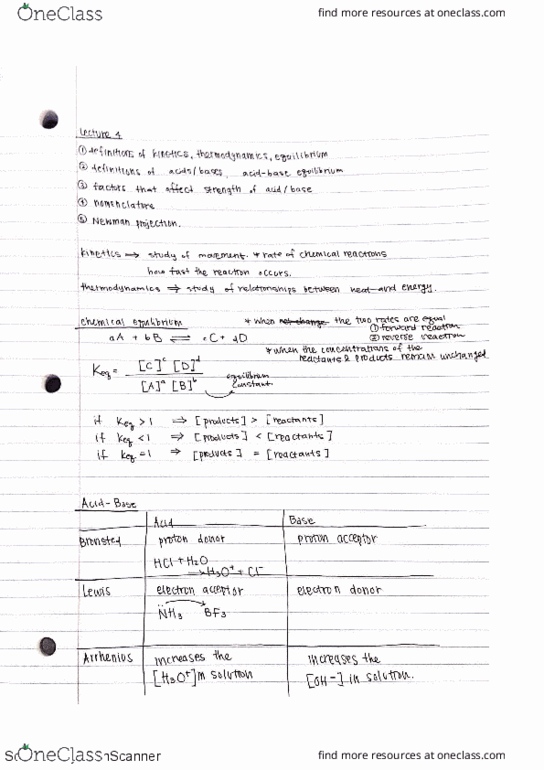 OneClass
find more resources at oneclass.com
Lecture 4
① definitions of kinetics, thermodynamics, equilibrium
② definitions of acids/bases, acid-base equilibrium
③ factors that affect strength of acid/base
④ nomenclature
⑤ Newman projection.
kinetics → study of movement. * rate of chemical reactions
how fast the reaction occurs.
thermodynamics → study of relationships between heat and energy.
chemical equilibrium
* when the two rates are equal
① forward reaction
② reverse reaction
aA + bB ⇌ cC + dD
* when the concentrations of the
reactants & products remain unchanged
Keq = [C]^c [D]^d / [A]^a [B]^b
equilibrium
constant
if Keq > 1 ⇒ [products] > [reactants]
if Keq < 1 ⇒ [products] < [reactants]
if Keq = 1 ⇒ [products] = [reactants]
Acid-Base
Acid Base
Brensted proton donor proton acceptor
HCl + H₂O
→ H₃O⁺ + Cl⁻
Lewis electron acceptor electron donor
N̈H₃ BF₃
Arrhenius increases the increases the
[H₃O⁺] in solution [OH⁻] in solution.
OneClass
Scanner
find more resources at oneclass.com